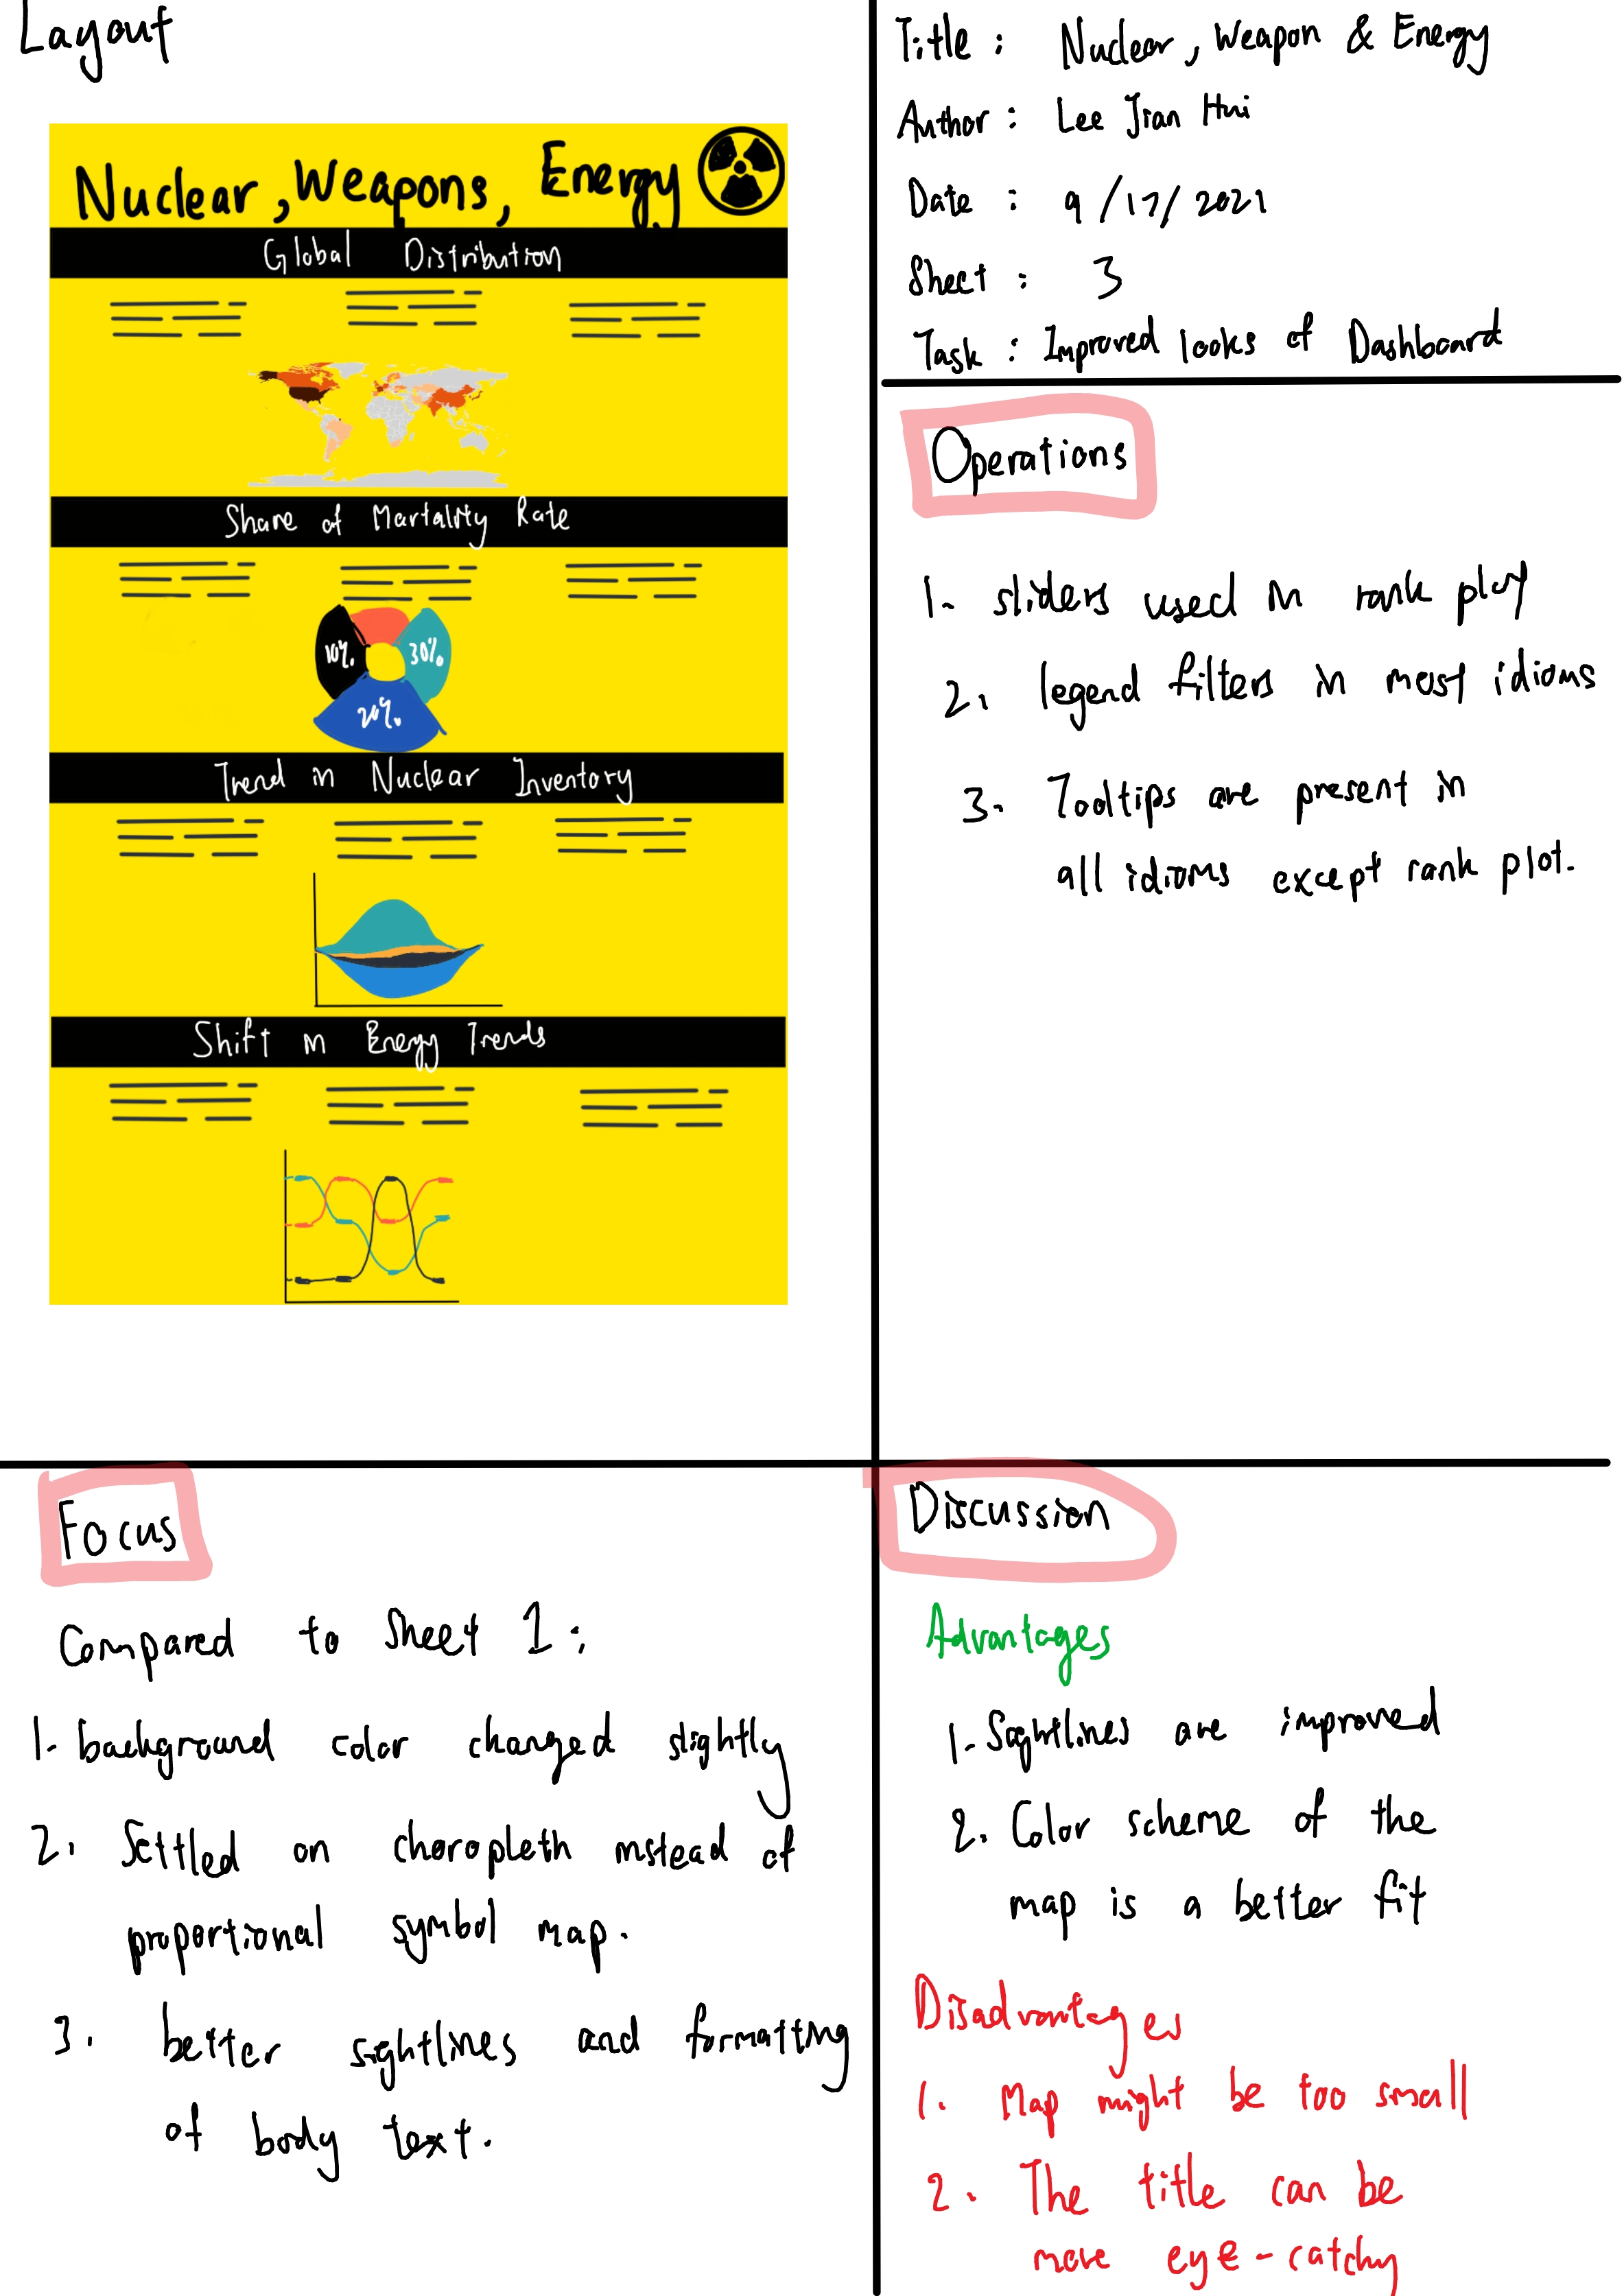 Layout
Nuclear, Weapons, Energy
Global Distribution
Share of Mortality Rate
10%.
30%.
20%.
Trend in Nuclear Inventory
Shift in Energy Trends
Title : Nuclear, Weapon & Energy
Author : Lee Jian Hui
Date : 9/17/2021
Sheet : 3
Task : Improved looks of Dashboard
Operations
1. sliders used in rank plot
2. legend filters in most idioms
3. Tooltips are present in
all idioms except rank plot.
Focus
Compared to Sheet 1 :
1. background color changed slightly
2. Settled on choropleth instead of
proportional symbol map.
3. better sightlines and formatting
of body text.
Discussion
Advantages
1. Sightlines are improved
2. Color scheme of the
map is a better fit
Disadvantages
1. Map might be too small
2. The title can be
more eye-catchy